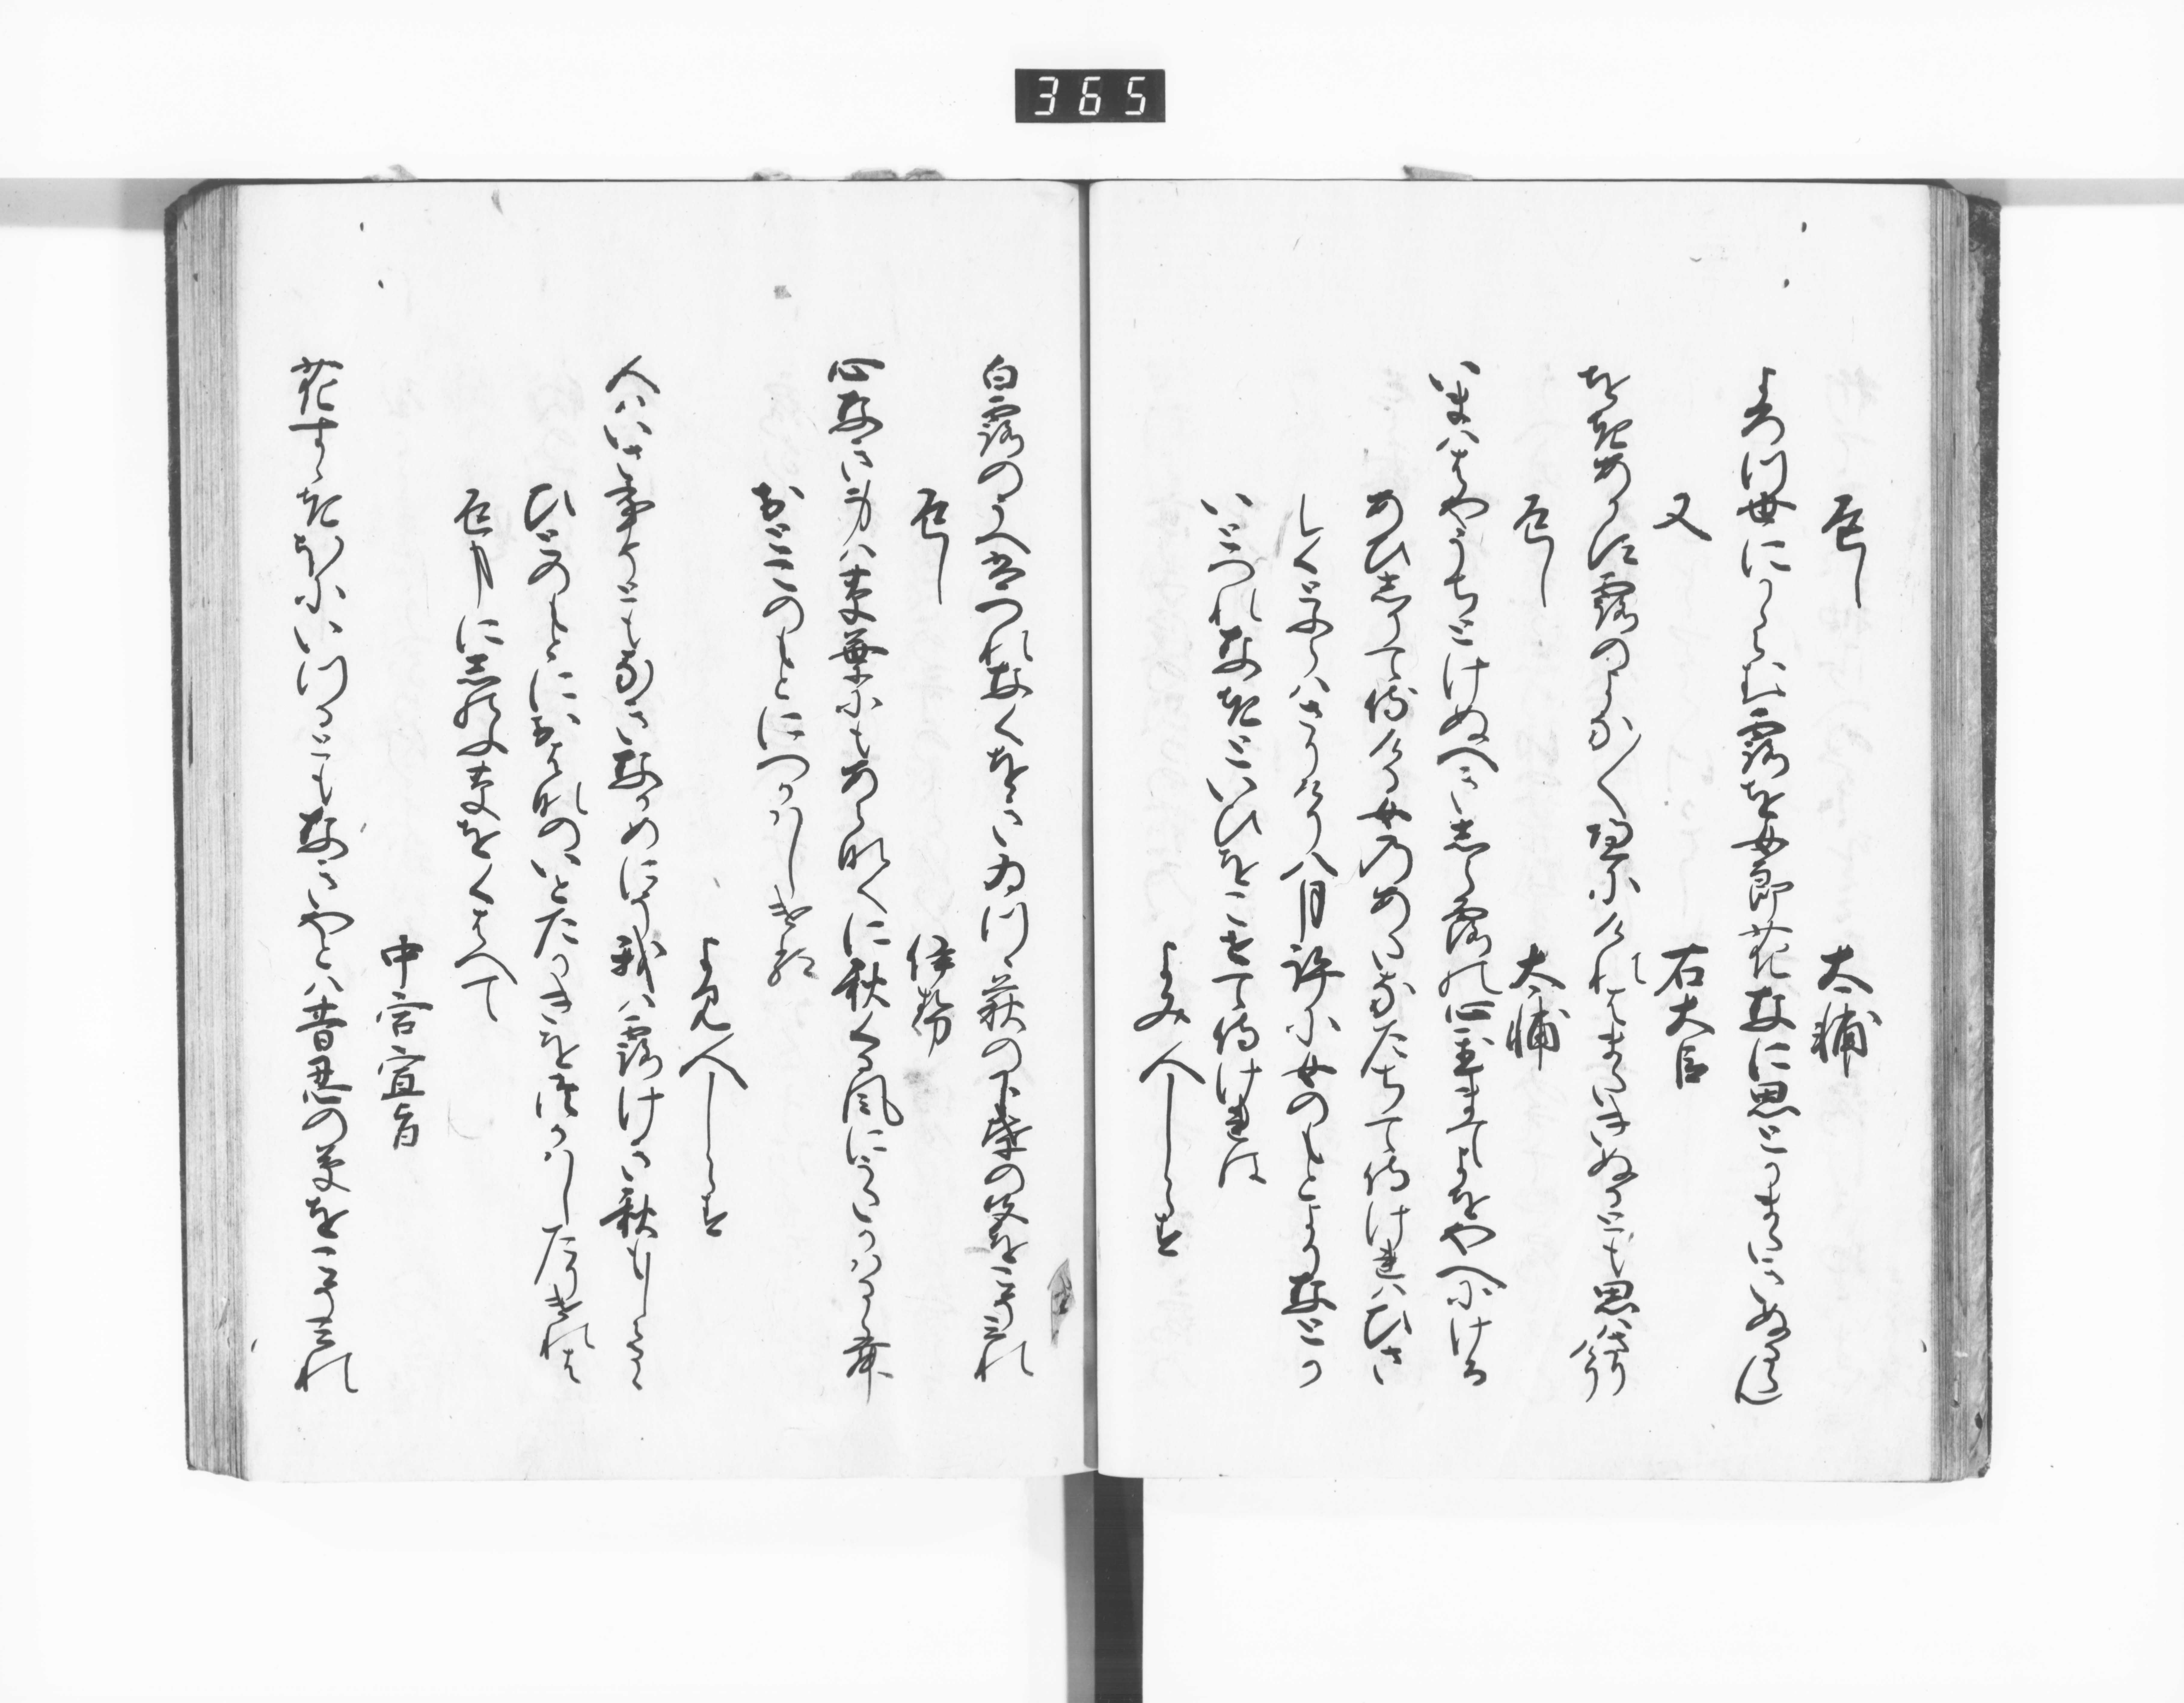 365
返し　大輔
よろつ世にかゝらぬ露を女郎花なに思とかまたきぬるらん
又　右大臣
をきあかす露のよな〱經にけれはまたきぬるとも思はさりけり
返し　大輔
いまははやうちとけぬへき志ら露の心をくまてよをやへにける
あひ志りて侍ける女のあたなたちて侍けれはひさ
しくとふらはさりけり八月許に女のもとよりなとか
いとつれなきといひをこせて侍けれは
よみ人しらす
白露のうへはつれなくをきゐつゝ萩の下葉の色をこそみれ
返し　伊勢
心なき身は草葉にもあらなくに秋くる風にうたかはるらむ
おとこのもとにつかはしける
よみ人しらす
人はいさ事そともなきなかめにそ我は露けき秋もしらるゝ
ひとのもとにおはなのいとたかきをつかはしたりけれは
返事に志のふ草をくはへて
中宮宣旨
花すゝきほにいつることもなきやとは昔忍の草をこそみれ